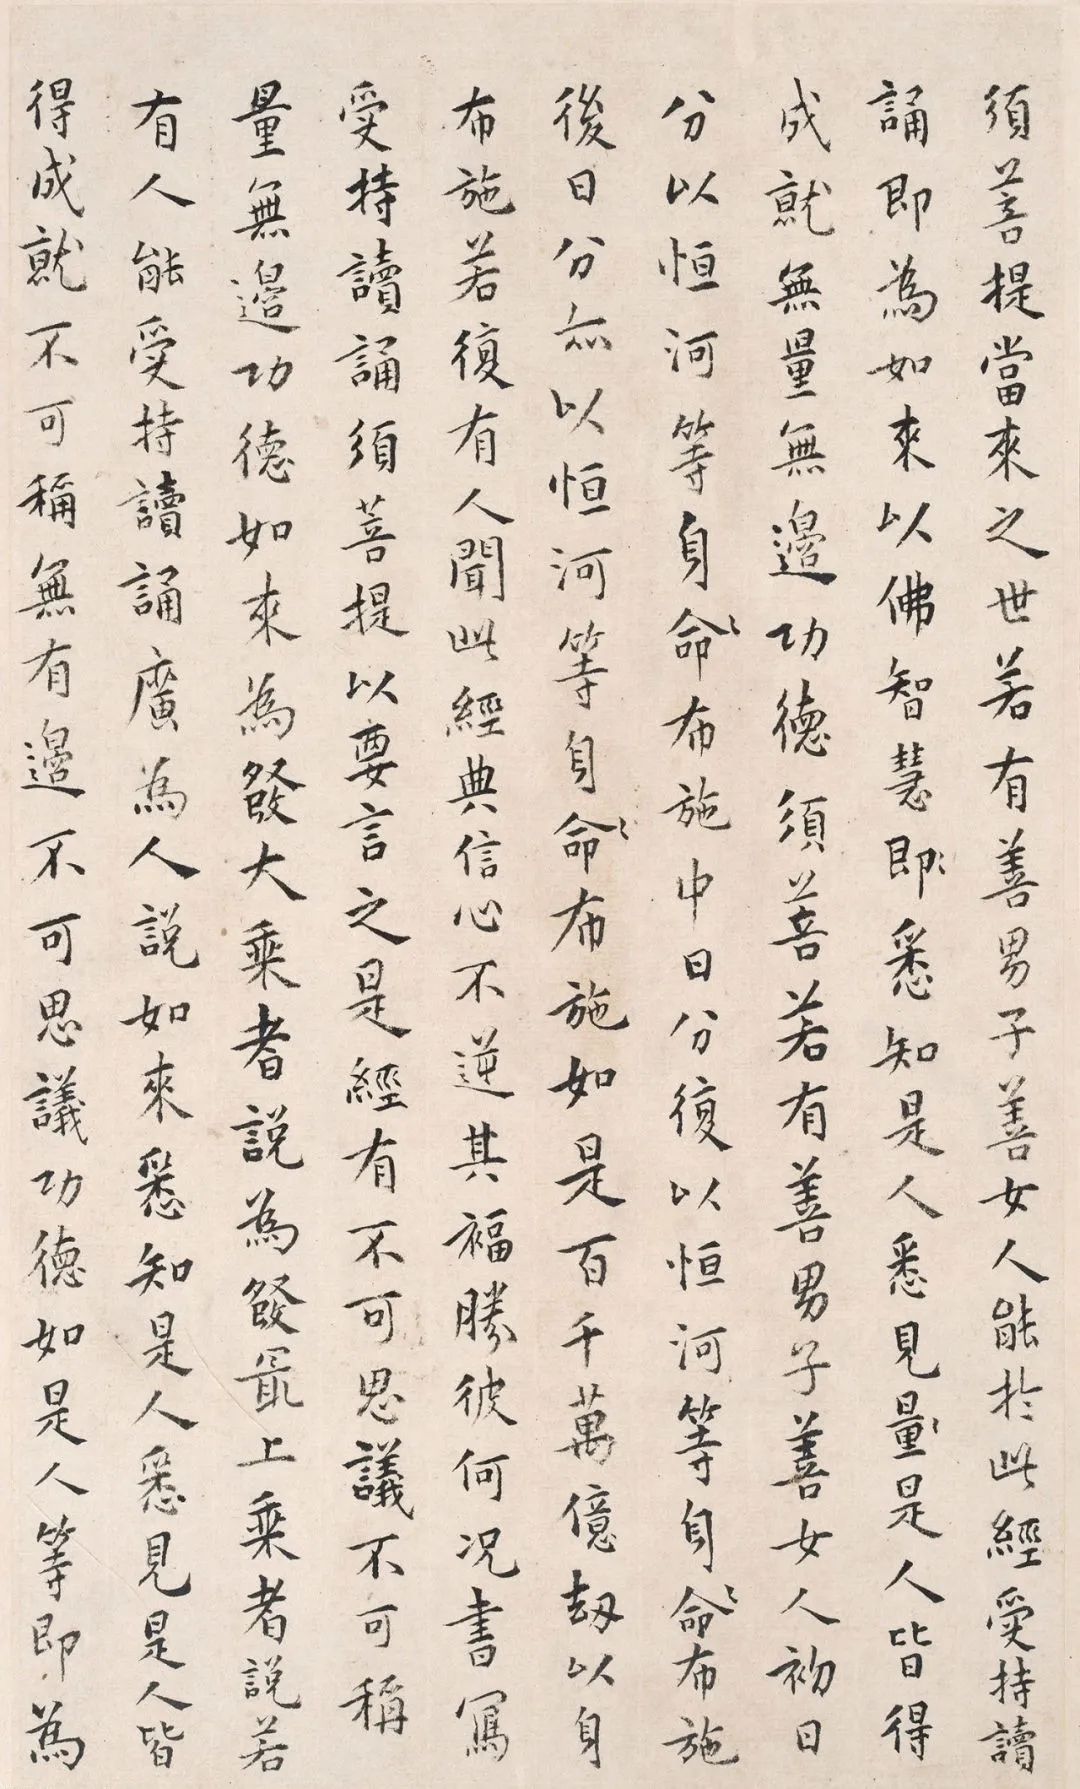 須菩提當來之世若有善男子善女人能於此經受持讀
誦即為如來以佛智慧即悉知是人悉見量是人皆得
成就無量無邊功德須菩若有善男子善女人初日
分以恒河等身命布施中日分復以恒河等身命布施
後日分亦以恒河等身命布施如是百千萬億劫以身
布施若復有人聞此經典信心不逆其福勝彼何况書寫
受持讀誦須菩提以要言之是經有不可思議不可稱
量無邊功德如來為發大乘者說為發最上乘者說若
有人能受持讀誦廣為人說如來悉知是人悉見是人皆
得成就不可稱無有邊不可思議功德如是人等即為